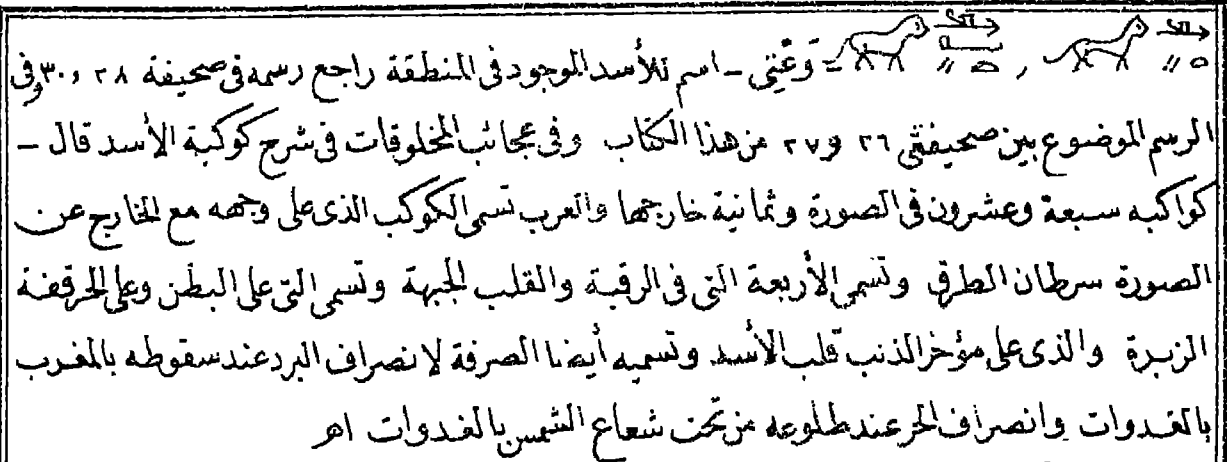 ، = وَعْتِى - اسم للأسد الموجود فى المنطقة راجع رسمه فى صحيفة ٢٨ و ٣٠ وفى
الرسم الموضوع بين صحيفتى ٢٦ و ٢٧ من هذا الكتاب وفى عجائب المخلوقات فى شرح كوكبة الأسد قال -
كواكبه سبعة وعشرون فى الصورة وثمانية خارجها والعرب تسمى الكوكب الذى على وجهه مع الخارج عن
الصورة سرطان الطرق وتسمى الأربعة التى فى الرقبة والقلب الجبهة وتسمى التى على البطن وعلى الحرقفة
الزبرة والذى على مؤخر الذنب قلب الأسد وتسميه أيضا الصرفة لانصراف البرد عند سقوطه بالمغرب
بالغدوات وانصراف الحر عند طلوعه من تحت شعاع الشمس بالغدوات اهـ